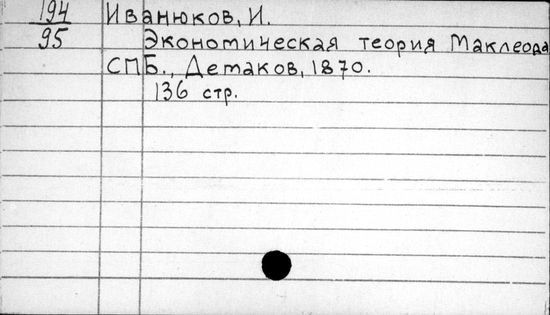 194
95
Иванюков, И.
Экономическая теория Маклеода
СПБ., Детаков, 1870.
136 стр.